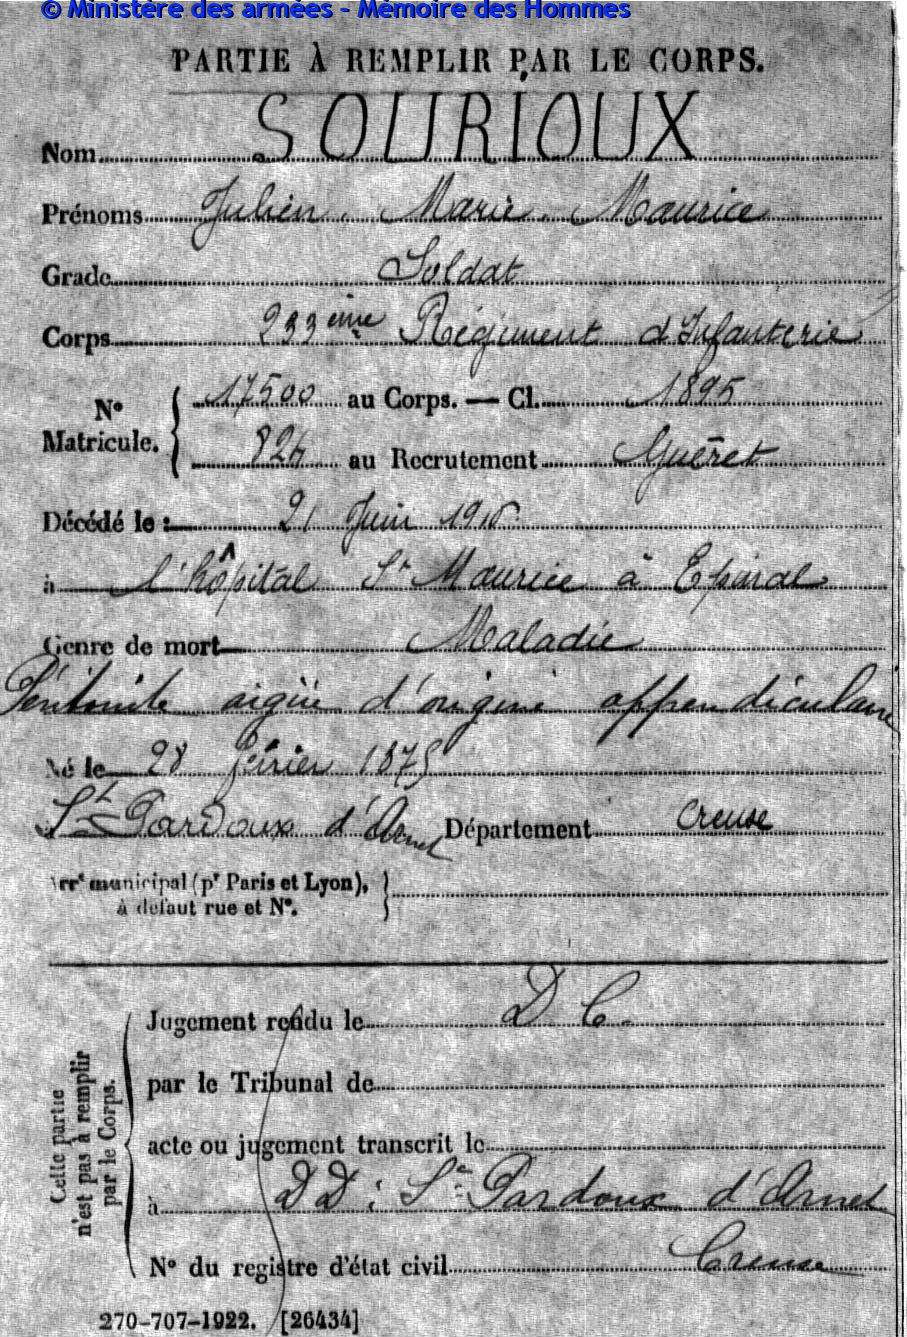 © Ministère des armées - Mémoire des Hommes
PARTIE À REMPLIR PAR LE CORPS.
Nom SOURIOUX
Prénoms Julien, Marie, Maurice
Grade Soldat
Corps 233ème Régiment d'Infanterie
N° Matricule. { 17500 au Corps. — Cl. 1895
824 au Recrutement Guéret
Décédé le : 21 Juin 1915
à l'hôpital St Maurice à Epinal
Genre de mort Maladie
Péritonite aigüe d'origine appendiculaire
Né le 28 février 1875
St Pardoux d'Arnet Département Creuse
Arrt municipal (pr Paris et Lyon), }
à defaut rue et N°.
Cette partie n'est pas à remplir par le Corps.
Jugement rendu le D C.
par le Tribunal de
acte ou jugement transcrit le
à DD : St Pardoux d'Arnet
N° du registre d'état civil Creuse
270-707-1922. [26434]